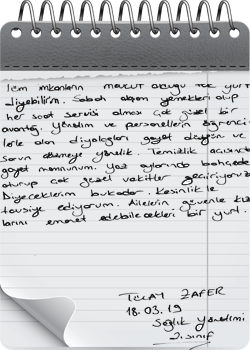 Tüm imkanların mevcut olduğu tek yurt
diyebilirim. Sabah akşam yemekleri olup
her saat servisi olması çok güzel bir
avantaj. Yönetim ve personellerin öğrenci-
lerle olan diyalogları gayet düzgün ve
sorun çözmeye yönelik. Temizlik açısından
gayet memnunum. Yaz aylarında bahçede
oturup çok güzel vakitler geçiriyoruz.
Diyeceklerim bu kadar. Kesinlikle
tavsiye ediyorum. Ailelerin güvenle kız
larını emanet edebilecekleri bir yurt.
ZAFER
18.03.19
Sağlık Yönetimi
2.sınıf